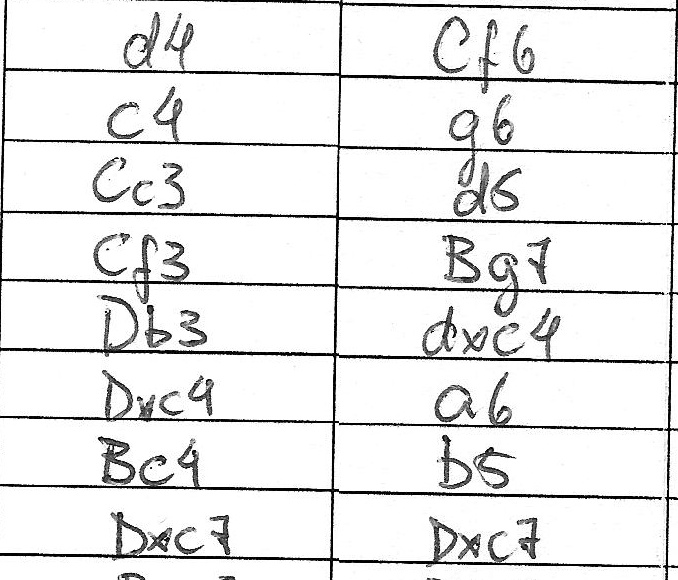 d4 Cf6
c4 g6
Cc3 d5
Cf3 Bg7
Db3 dxc4
Dxc4 a6
Bc4 b5
Dxc7 Dxc7